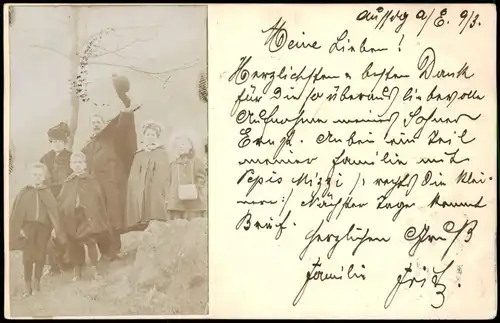 Aussig a/E. 9/3.
Meine Lieben!
Herzlichsten u besten Dank
für die so überaus liebevolle
Aufnahme meines Sohnes
Ernst. Anbei ein Teil
meiner Familie mit
Pepis Mizzi /: rechts die Klei-
nere :/ Nächster Tage kommt
Brief.
Herzlichen Gruß
Familie Fritz